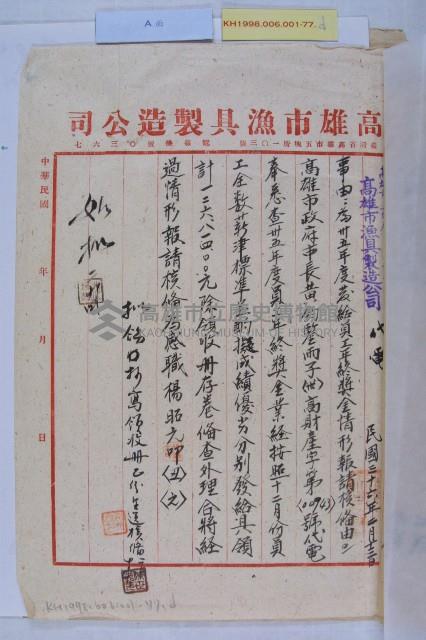 A面
KH1998.006.001-77-d
高雄市漁具製造公司
高雄市漁具製造公司 代電
民國三十六年一月十三日
事由：為卅五年度發給員工年終獎金情形報請核備由：
高雄市政府市長黃鈞鑒雨子高財產字第(00943)號代電
奉悉查卅五年度員工年終獎金業經按照十二月份員
工全數薪津標準並酌擬成績優劣分別發給具領
計一二六八八四〇〇元除領收冊存卷備查外理合將經
過情形報請核備為感職楊昭元叩(丑)(元)
如擬
中華民國 年 月 日
高雄市立歷史博物館
KAOHSIUNG MUSEUM OF HISTORY
KH1998.006.001-77-d